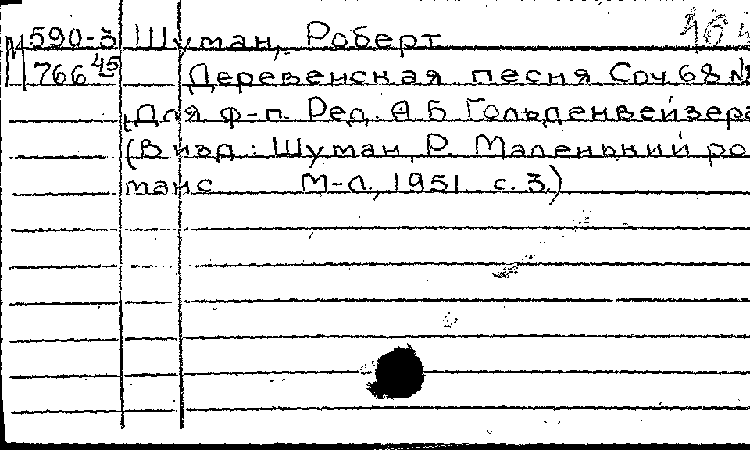 М590-3 Шуман, Роберт
766 45 Деревенская песня Соч. 68 №
Для ф-п. Ред. А Б Гольденвейзера
(В изд: Шуман, Р. Маленький ро-
манс М-Л., 1951 с. 3.)